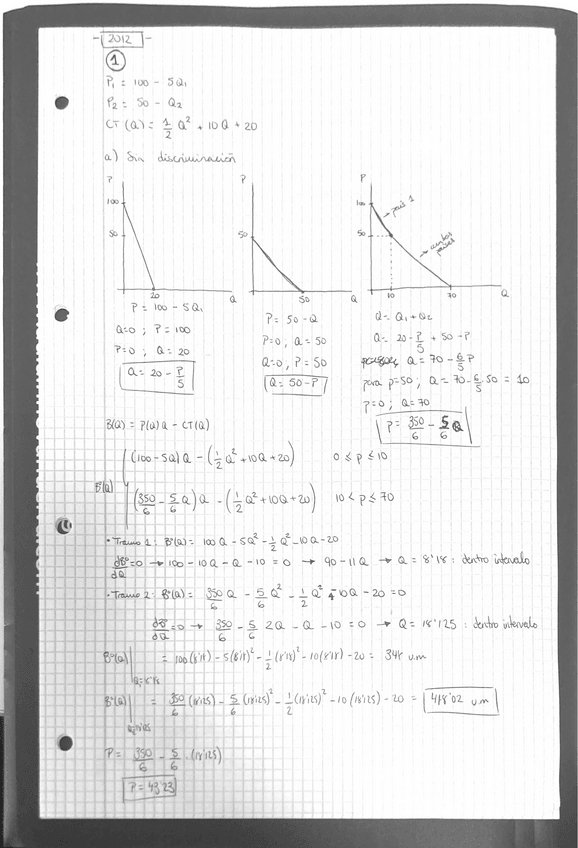 - 2012 -
①
P₁ = 100 - 5Q₁
P₂ = 50 - Q₂
CT(Q) = 1/2 Q² + 10Q + 20
a) Sin discriminación
P
100
50
20
Q
P
50
50
Q
P
100
50
10
70
Q
→ país 1
→ ambos países
P = 100 - 5Q₁
Q=0 ; P=100
P=0 ; Q=20
Q = 20 - P/5
P = 50 - Q
P=0, Q=50
Q=0, P=50
Q = 50 - P
Q = Q₁ + Q₂
Q = 20 - P/5 + 50 - P
Q = 70 - 6/5 P
para p=50, Q = 70 - 6/5 · 50 = 10
p=0; Q=70
P = 350/6 - 5/6 Q
B(Q) = P(Q)Q - CT(Q)
B(Q)
(100-5Q)Q - (1/2 Q² + 10Q + 20) 0 ≤ p ≤ 10
(350/6 - 5/6 Q)Q - (1/2 Q² + 10Q + 20) 10 < p ≤ 70
• Tramo 1: Bº(Q) = 100Q - 5Q² - 1/2 Q² - 10Q - 20
dBº/dQ = 0 → 100 - 10Q - Q - 10 = 0 → 90 - 11Q → Q = 8'18 : dentro intervalo
• Tramo 2: Bº(Q) = 350/6 Q - 5/6 Q² - 1/2 Q² - 10Q - 20 = 0
dBº/dQ = 0 → 350/6 - 5/6 2Q - Q - 10 = 0 → Q = 18'125 : dentro intervalo
Bº(Q)| Q=8'18 = 100(8'18) - 5(8'18)² - 1/2 (8'18)² - 10(8'18) - 20 = 348 u.m
Bº(Q)| Q=18'125 = 350/6 (18'125) - 5/6 (18'125)² - 1/2 (18'125)² - 10(18'125) - 20 = 418'02 u.m
P = 350/6 - 5/6 · (18'125)
P = 43'23